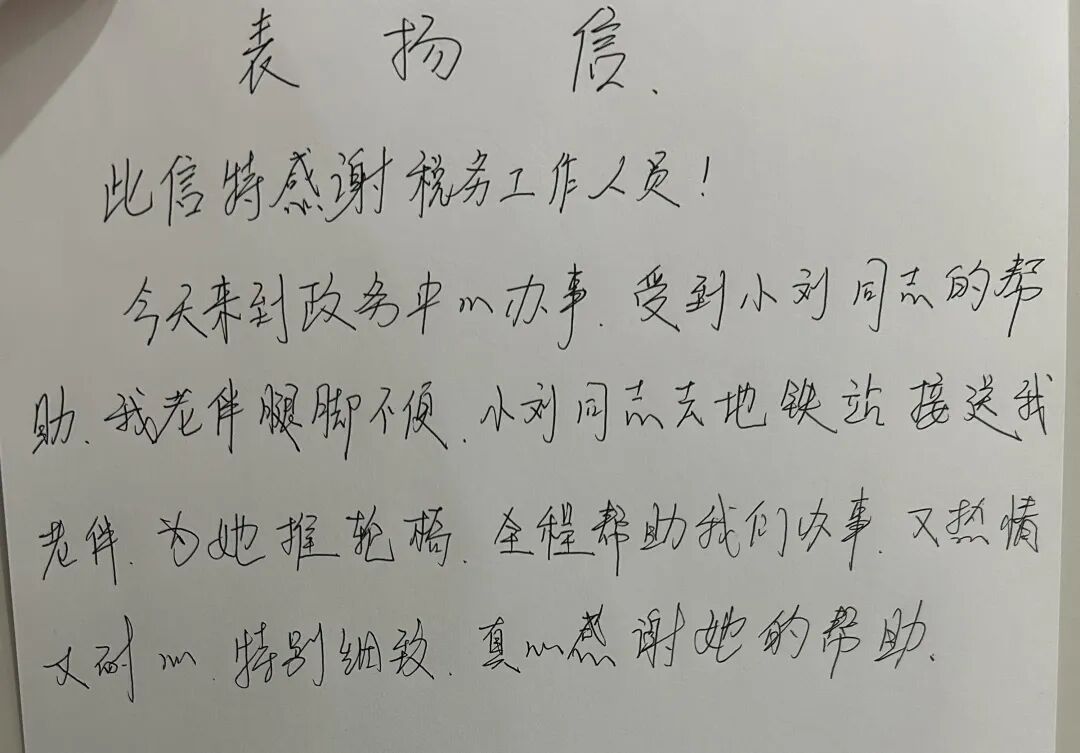 表扬信.
此信特感谢税务工作人员!
今天来到政务中心办事.受到小刘同志的帮
助.我老伴腿脚不便.小刘同志去地铁站接送我
老伴.为她推轮椅.全程帮助我们办事.又热情
又耐心.特别细致.真心感谢她的帮助.